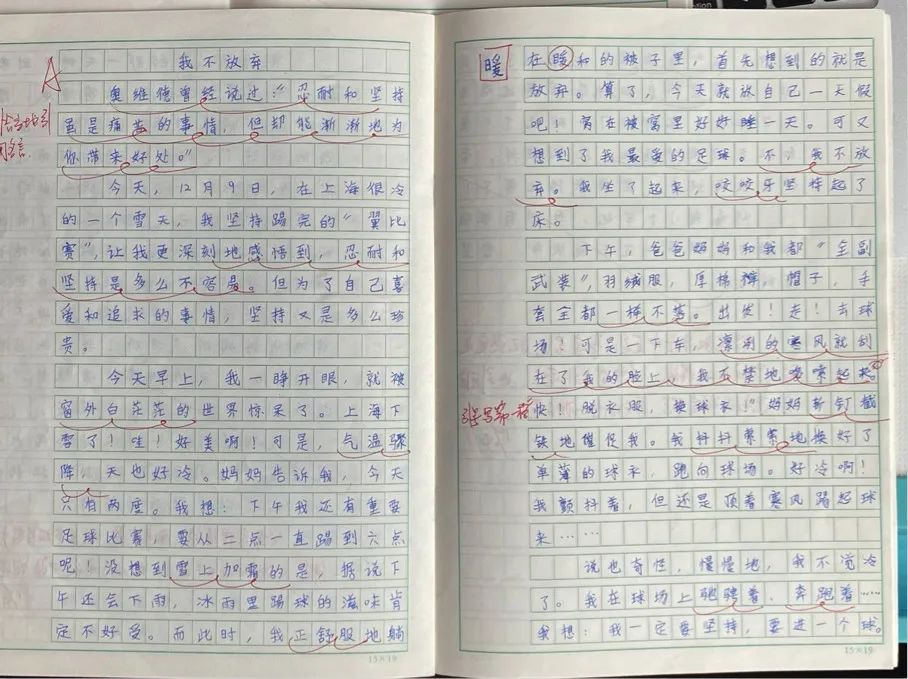 我不放弃
A
奥维德曾经说过:“忍耐和坚持
虽是痛苦的事情,但却能渐渐地为
你带来好处。”
今天,12月9日,在上海很冷
的一个雪天,我坚持踢完的“翼比
赛”,让我更深刻地感悟到,忍耐和
坚持是多么不容易。但为了自己喜
爱和追求的事情,坚持又是多么珍
贵。
今天早上,我一睁开眼,就被
窗外白茫茫的世界惊呆了。上海下
雪了!哇!好美啊!可是,气温骤
降,天也好冷。妈妈告诉我,今天
只有两度。我想:下午我还有重要
足球比赛,要从二点一直踢到六点
呢!没想到雪上加霜的是,据说下
午还会下雨,冰雨里踢球的滋味肯
定不好受。而此时,我正舒服地躺
15×19
暖
在暖和的被子里,首先想到的就是
放弃。算了,今天就放自己一天假
吧!窝在被窝里好好睡一天。可又
想到了我最爱的足球。不,我不放
弃。我坐了起来,咬咬牙坚持起了
床。
下午,爸爸妈妈和我都“全副
武装”,羽绒服,厚棉裤,帽子,手
套全都一样不落。出发!走!去球
场!可是一下车,凛冽的寒风就刮
在了我的脸上,我不禁地哆嗦起来。
快!脱衣服,换球衣!”妈妈斩钉截
铁地催促我。我抖抖索索地换好了
单薄的球衣,跑向球场。好冷啊!
我颤抖着,但还是顶着寒风踢起球
来……
说也奇怪,慢慢地,我不觉冷
了。我在球场上驰骋着,奔跑着……
我想:我一定要坚持,要进一个球。
15×19